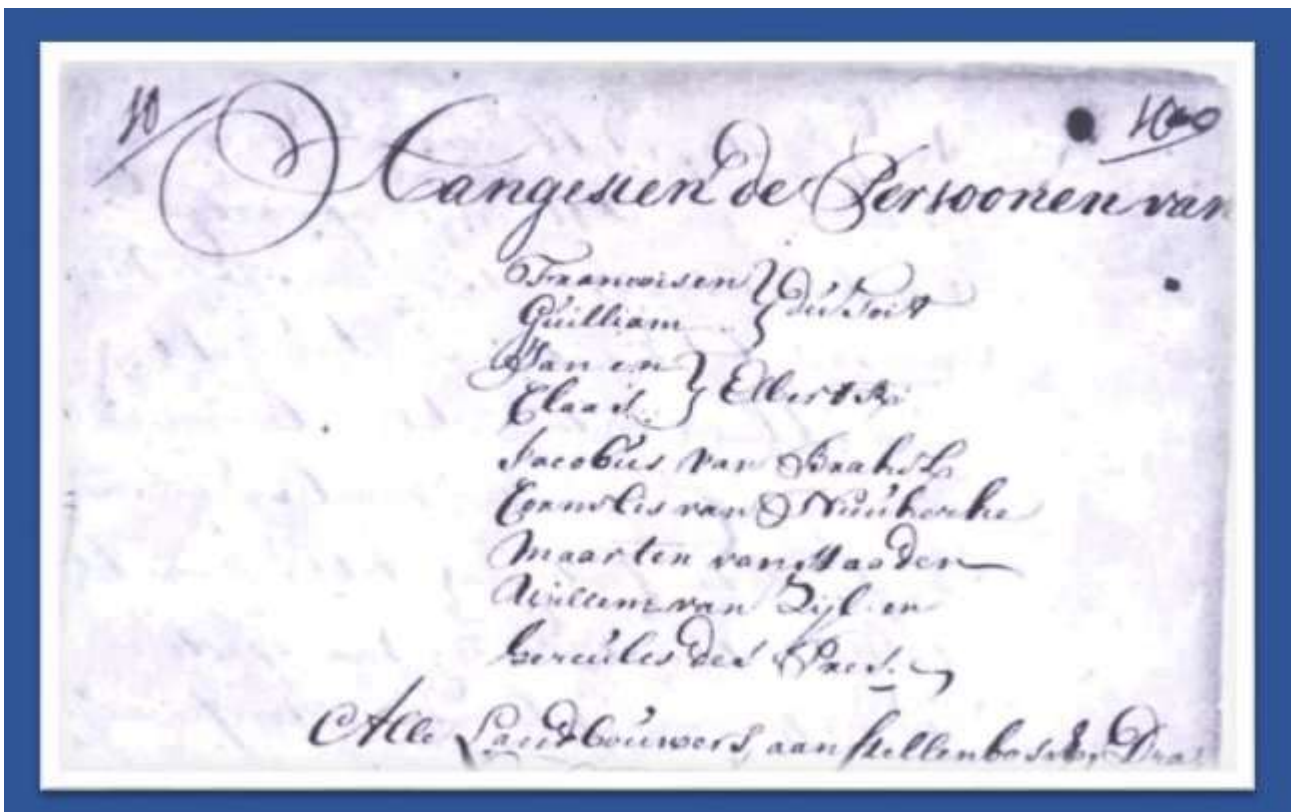 10
Aangesien de Persoonen van
Francois en
Guilliam } du Toit
Jan en
Claas } Elberts
Jacobus van Brakel
Cornelis van Niukerke
Maarten van Staaden
Willem van Zijl en
Hercules des Pres.
Alle Landbouwers, aan Stellenbosch, Dra